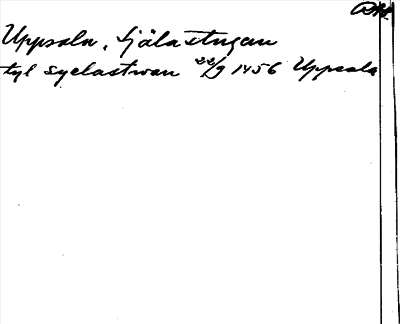 DMS
Uppsala, Själastugan
tyl syelastwan 22/9 1456 Uppsala